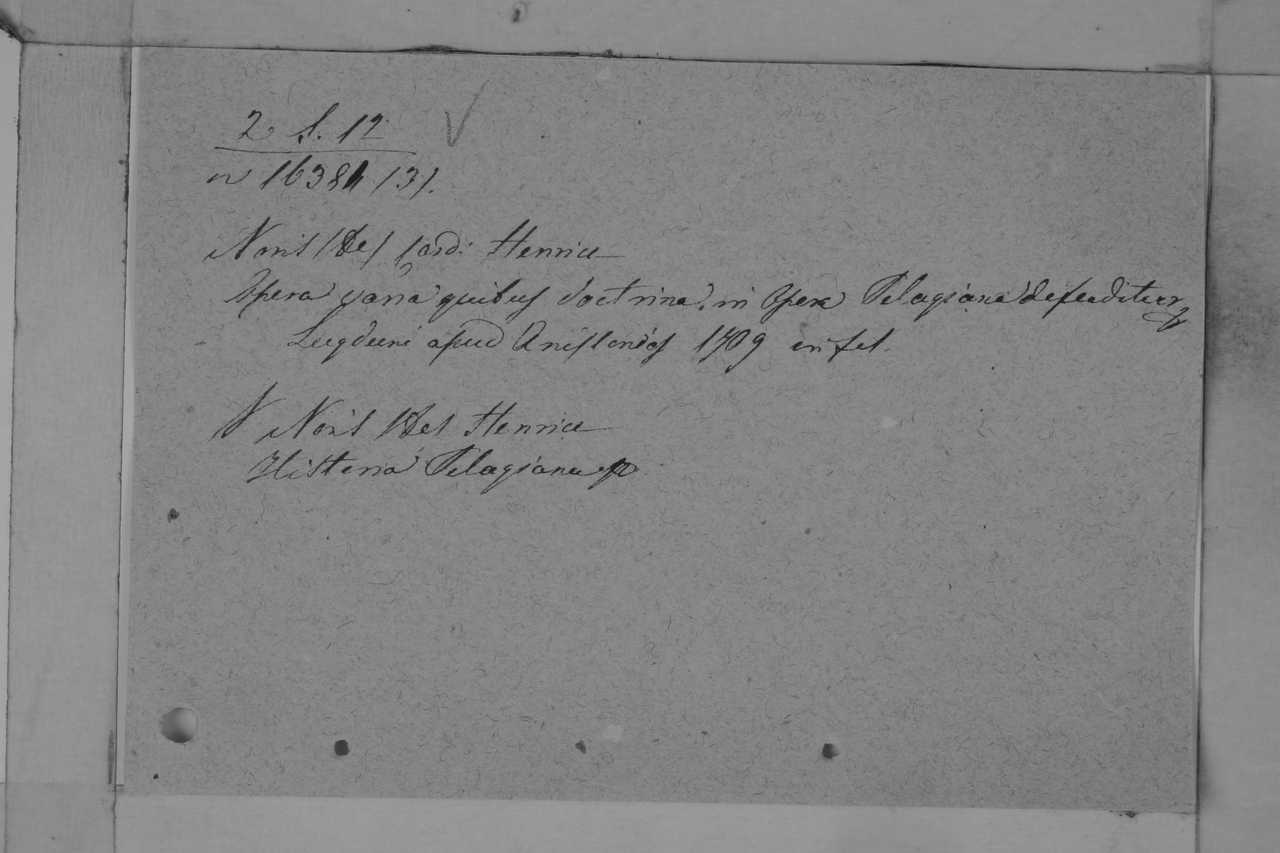 2 S. 12
n 16384 /3/.
Noris /de/ Card: Henrice
Opera varia quibus doctrina, in Opere Pelagiana defenditur
Lugduni apud Anissonios 1709 in fol.
V Noris /de/ Henrice
Historia Pelagiana